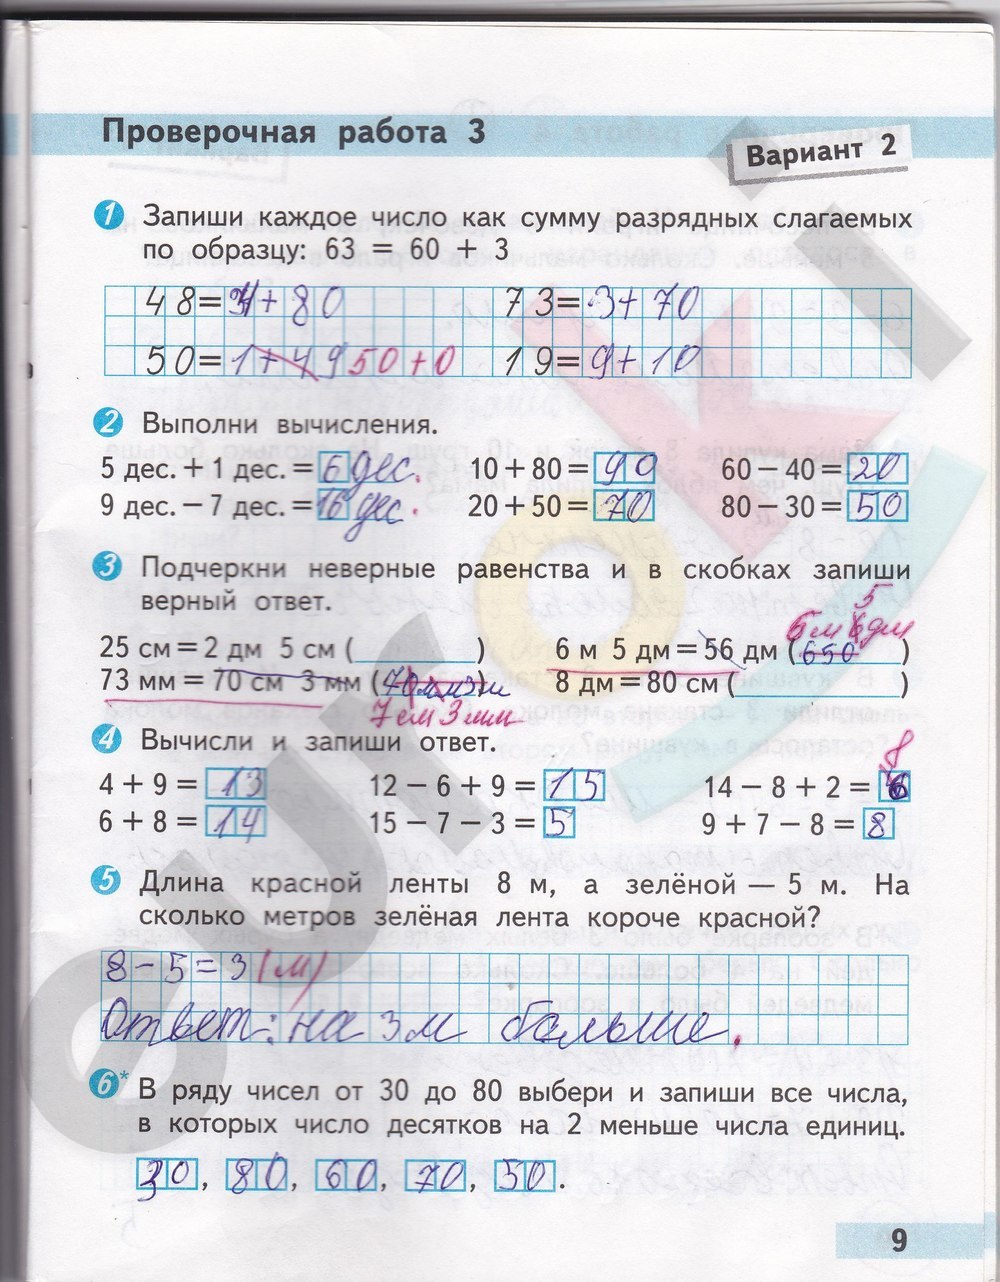 Проверочная работа 3
Вариант 2
1 Запиши каждое число как сумму разрядных слагаемых
по образцу: 63 = 60 + 3
48= + 80 73= 3+ 70
50= 1 + 49 50 + 0 19= 9+ 10
2 Выполни вычисления.
5 дес. + 1 дес. = 6 дес. 10 + 80 = 90 60 − 40 = 20
9 дес. − 7 дес. = 16 дес. 20 + 50 = 70 80 − 30 = 50
3 Подчеркни неверные равенства и в скобках запиши
верный ответ.
5
6 м 6 дм
25 см = 2 дм 5 см ( ) 6 м 5 дм = 56 дм (650)
73 мм = 70 см 3 мм ( ) 8 дм = 80 см ( )
7 см 3 мм
4 Вычисли и запиши ответ.
8
4 + 9 = 13 12 − 6 + 9 = 15 14 − 8 + 2 = 6
6 + 8 = 14 15 − 7 − 3 = 5 9 + 7 − 8 = 8
5 Длина красной ленты 8 м, а зелёной — 5 м. На
сколько метров зелёная лента короче красной?
8 − 5 = 3 (м)
Ответ: на 3м больше.
6* В ряду чисел от 30 до 80 выбери и запиши все числа,
в которых число десятков на 2 меньше числа единиц.
30, 80, 60, 70, 50.
9
euroki